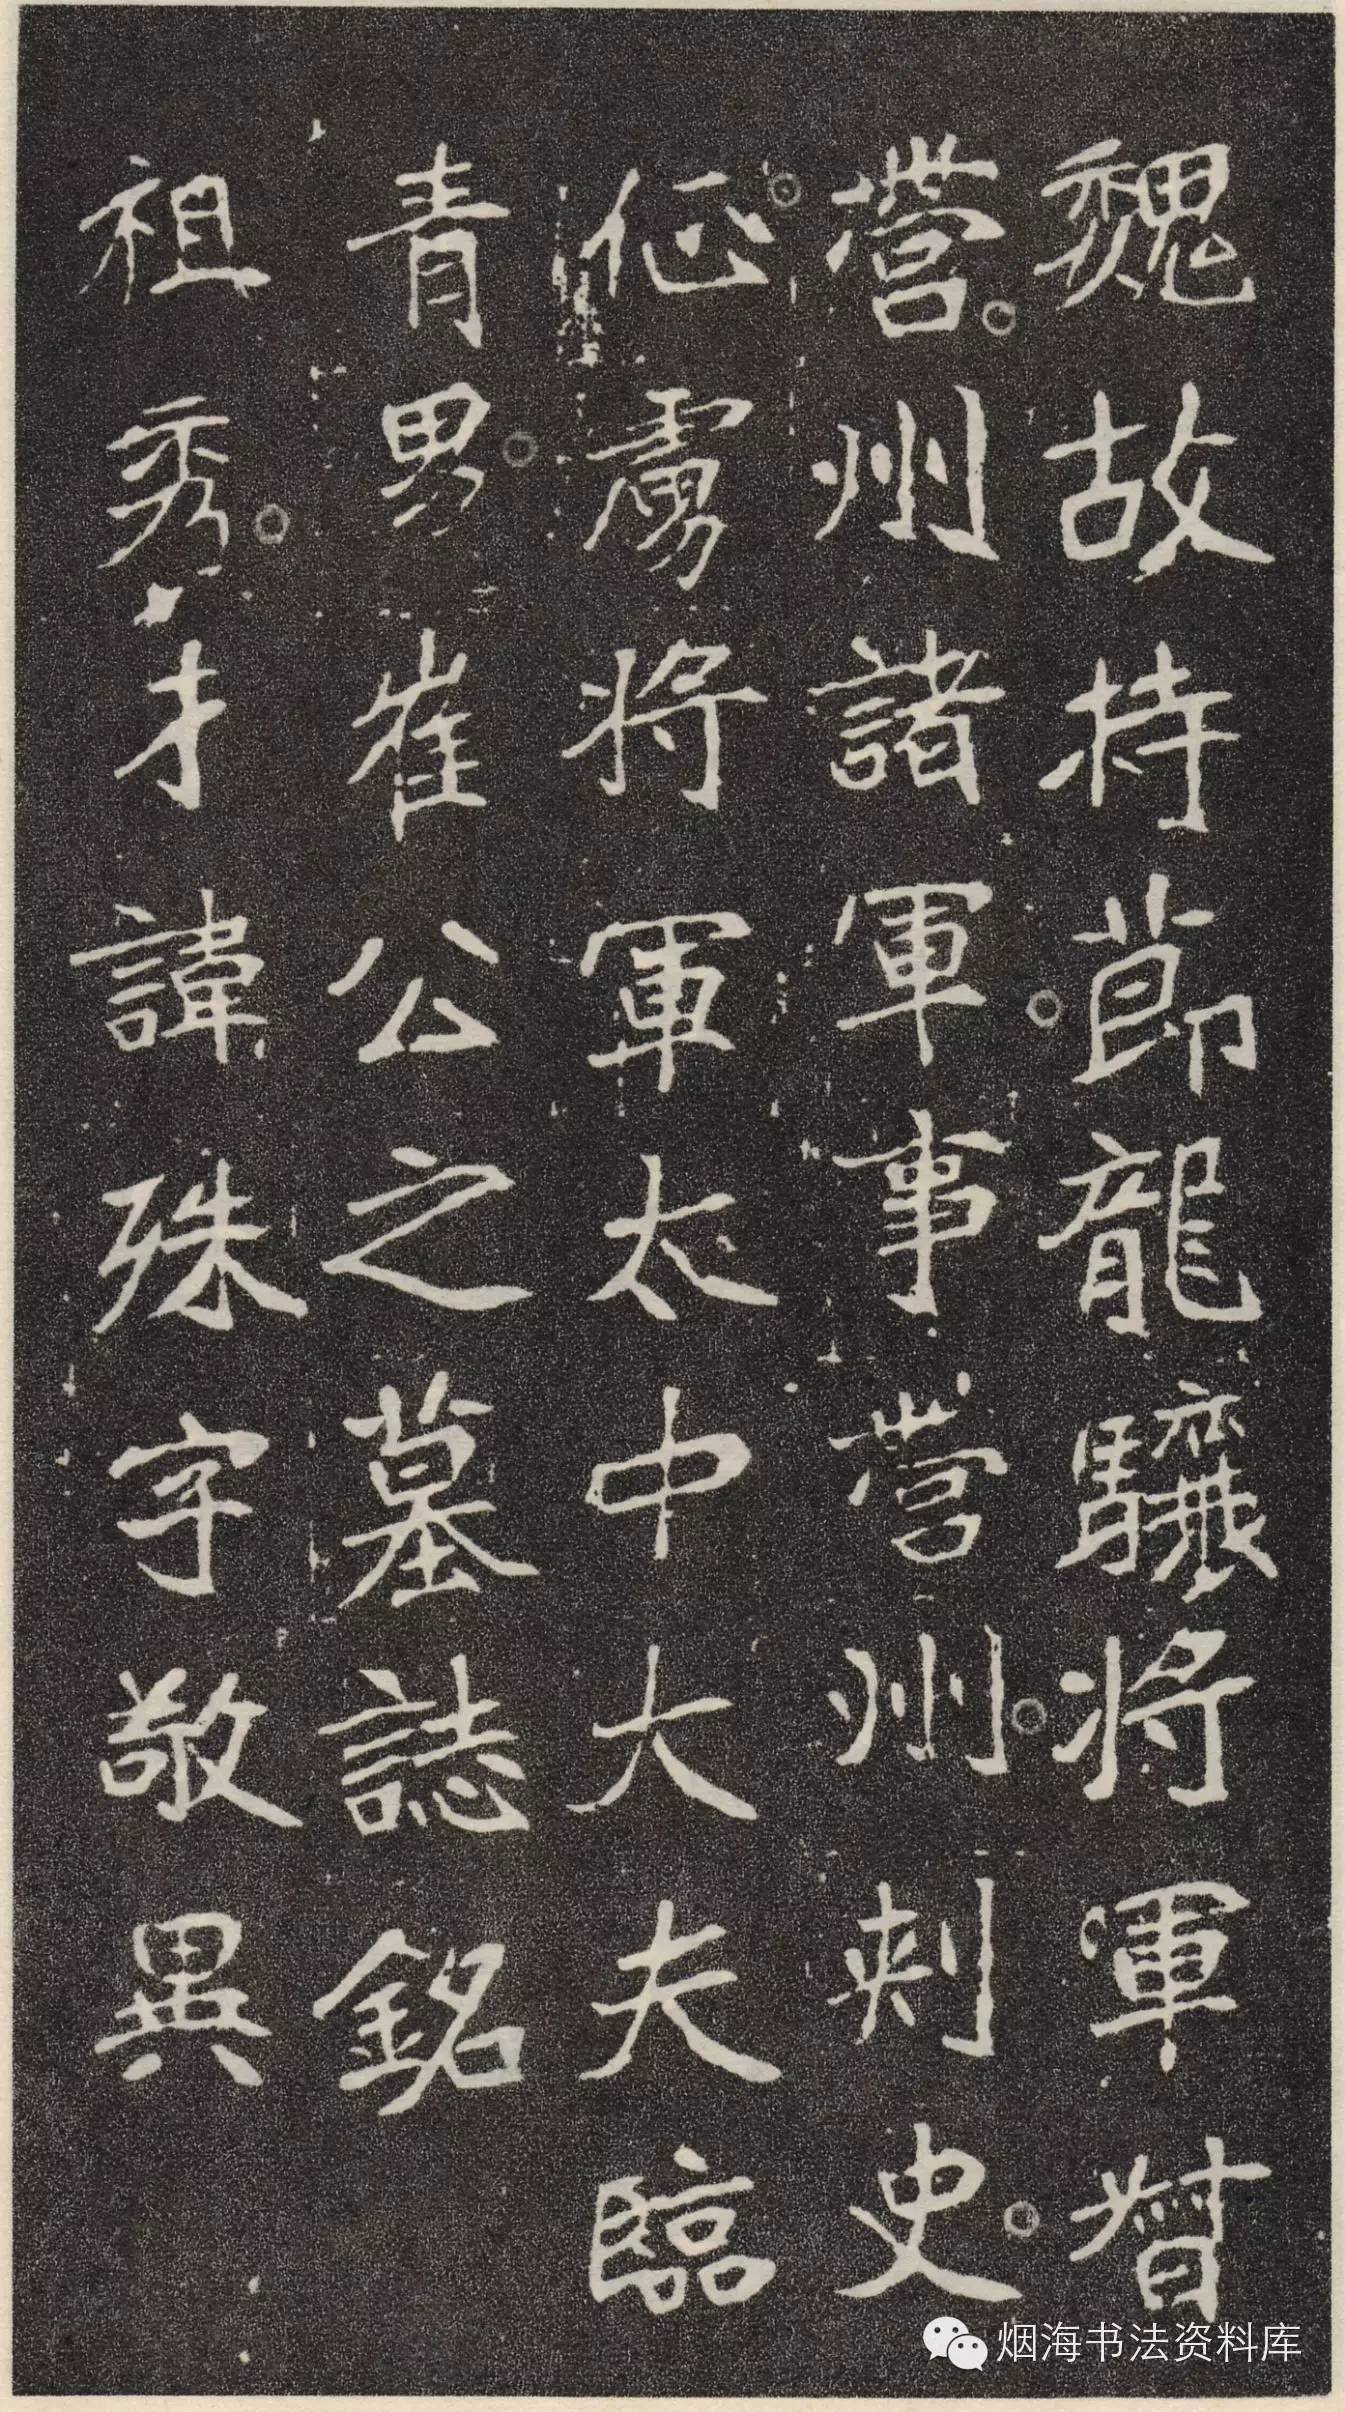 魏故持節龍驤將軍督
營州諸軍事營州刺史
征虜將軍太中大夫臨
青男崔公之墓誌銘
祖秀才諱殊字敬異
烟海书法资料库